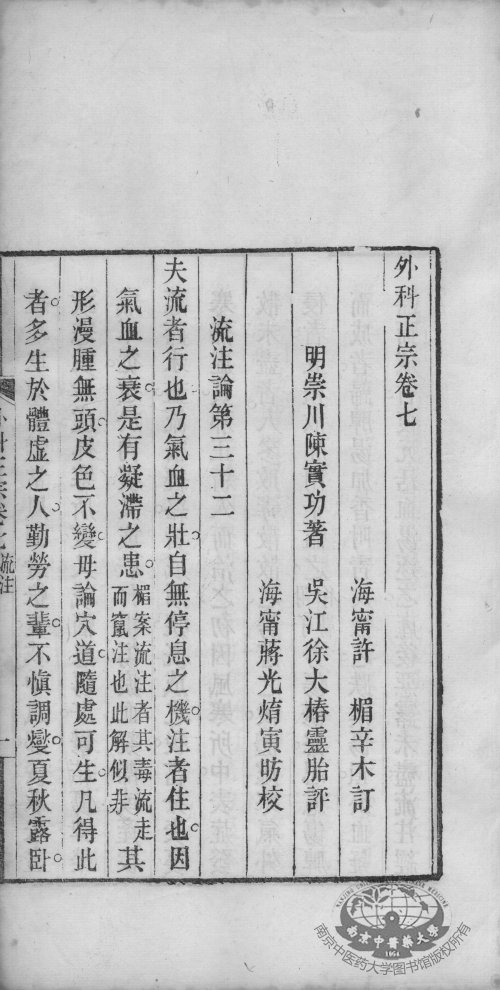 外科正宗卷七
海甯許　楣辛木訂
明崇川陳實功著　吳江徐大椿靈胎評
海甯蔣光焴寅昉校
流注論第三十二
夫流者行也乃氣血之壯自無停息之機注者住也因
氣血之衰是有凝滯之患楣案流注者其毒流走而竄注也此解似非其
形漫腫無頭皮色不變毋論穴道隨處可生凡得此
者多生於體虛之人勤勞之輩不慎調燮夏秋露卧
流注
一
南京中醫藥大學
1954
南京中医药大学图书馆版权所有